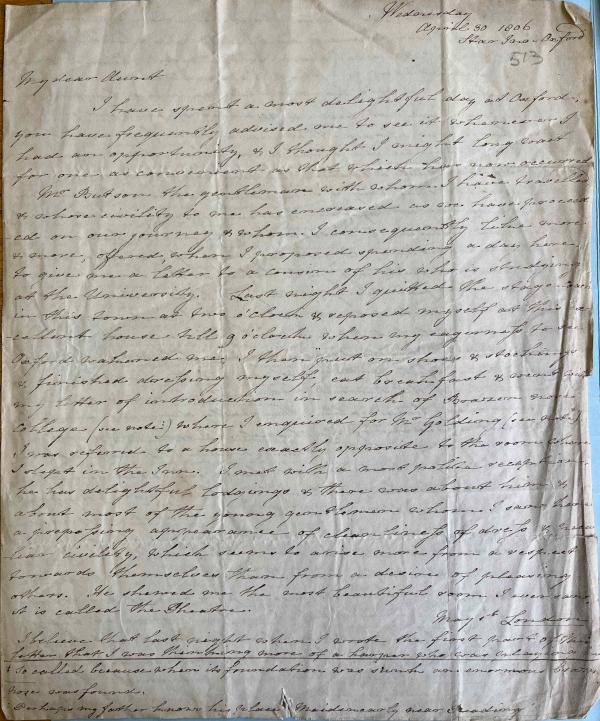 Wednesday
April 30 1806
Star Inn - Oxford
513
My dear Aunt
I have spent a most delightful day at Oxford,
you have frequently advised me to see it whenever I
had an opportunity, & I thought I might long wait
for one as convenient as that which has now occurred
Mr Rutson the gentleman with whom I have travelled
& whose civility to me has encreased as we have proceed
-ed on our journey & whom I consequently like more
& more, offered when I proposed spending a day here,
to give me a letter to a cousin of his who is studying
at the University. Last night I quitted the stage coach
in this town at two o'clock & reposed myself at this ex
cellent house till 9 o'clock when my eagerness to see
Oxford wakened me, I then put on shoes & stockings
& finished dressing myself eat breakfast & went with
my letter of introduction in search of Brazen nose
College (see note:) where I enquired for Mr Golding (see note)
I was referred to a house exactly opposite to the room where
I slept in the Inn. I met with a most polite reception,
he has delightful lodgings & there was about him &
about most of the young gentlemen whom I saw here
a preposing appearance of cleanliness of dress & pecu
liar civility, which seems to arise more from a respect
towards themselves than from a desire of pleasing
others. He shewed me the most beautiful room I ever saw,
it is called the Theatre.
May 1st London
I believe that last night when I wrote the first part of this
letter that I was thinking more of a harper who was
So called because when its foundation was sunk an enormous brazen
nose was found.
Perhaps my father knows his place near Reading